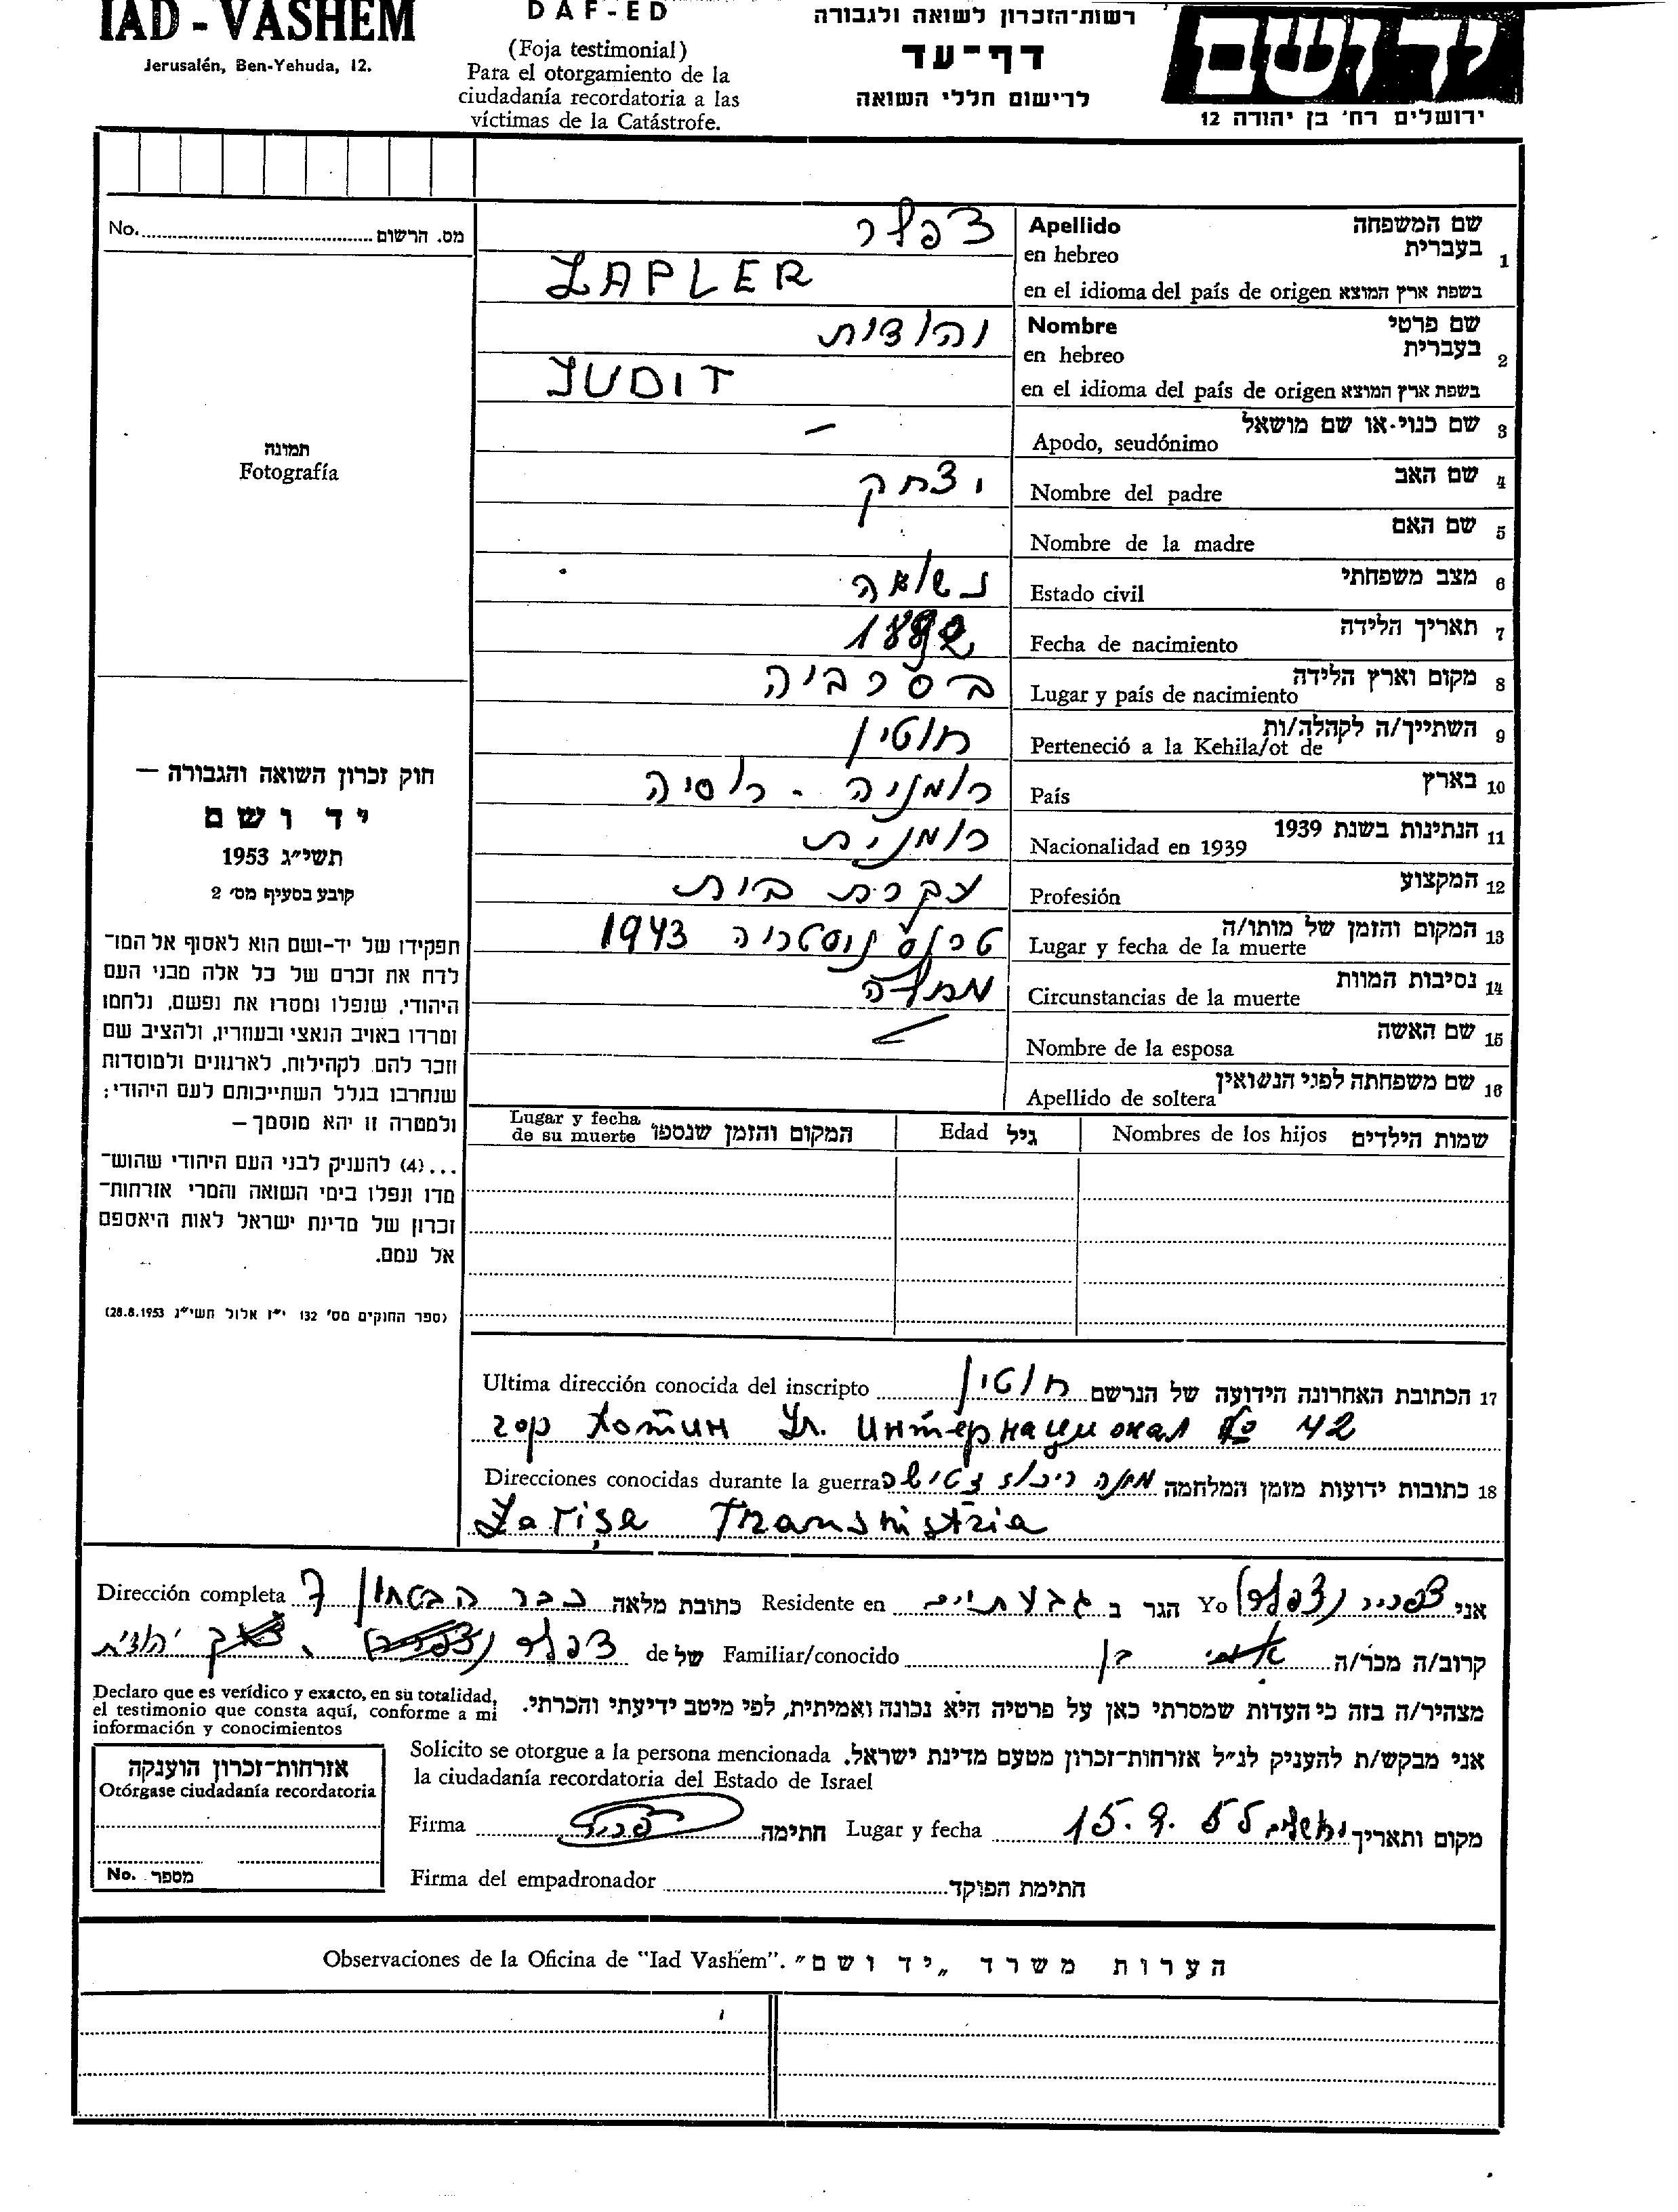 IAD - VASHEM
Jerusalén, Ben-Yehuda, 12.
DAF-ED
(Foja testimonial)
Para el otorgamiento de la
ciudadanía recordatoria a las
víctimas de la Catástrofe.
רשות־הזכרון לשואה ולגבורה
דף־עד
לרישום חללי השואה
יד ושם
ירושלים רח' בן יהודה 12
No. מס. הרשום
תמונה
Fotografía
חוק זכרון השואה והגבורה —
יד ושם
תשי״ג 1953
קובע בסעיף מס' 2
תפקידו של יד-ושם הוא לאסוף אל המו־
לדת את זכרם של כל אלה מבני העם
היהודי, שנפלו ומסרו את נפשם, נלחמו
ומרדו באויב הנאצי ובעוזריו, ולהציב שם
וזכר להם, לקהילות, לארגונים ולמוסדות
שנחרבו בגלל השתייכותם לעם היהודי;
ולמטרה זו יהא מוסמך —
...(4) להעניק לבני העם היהודי שהוש־
מדו ונפלו בימי השואה והמרי אזרחות־
זכרון של מדינת ישראל לאות היאספם
אל עמם.
(ספר החוקים מס' 132 י״ז אלול תשי״ג 28.8.1953)
1 שם המשפחה בעברית Apellido en hebreo צפלר
בשפת ארץ המוצא en el idioma del país de origen ZAPLER
2 שם פרטי בעברית Nombre en hebreo יהודית
בשפת ארץ המוצא en el idioma del país de origen JUDIT
3 שם כנוי-או שם מושאל Apodo, seudónimo —
4 שם האב Nombre del padre יצחק
5 שם האם Nombre de la madre
6 מצב משפחתי Estado civil נשואה
7 תאריך הלידה Fecha de nacimiento
8 מקום וארץ הלידה Lugar y país de nacimiento בסרביה
9 השתייך/ה לקהלה/ות Perteneció a la Kehila/ot de חוטין
10 בארץ País רומניה - רוסיה
11 הנתינות בשנת 1939 Nacionalidad en 1939 רומנית
12 המקצוע Profesión עקרת בית
13 המקום והזמן של מותו/ה Lugar y fecha de la muerte טרנסניסטריה 1943
14 נסיבות המוות Circunstancias de la muerte מחלה
15 שם האשה Nombre de la esposa
16 שם משפחתה לפני הנשואין Apellido de soltera
שמות הילדים Nombres de los hijos גיל Edad המקום והזמן שנספו Lugar y fecha de su muerte
17 הכתובת האחרונה הידועה של הנרשם חוטין Ultima dirección conocida del inscripto
гор Хотин Ул. Интернационал № 42
18 כתובות ידועות מזמן המלחמה Direcciones conocidas durante la guerra מחנה
Transnistria
אני צפניר (צפלר) Yo הגר ב גבעתיים Residente en כתובת מלאה ככר הבטחון 7 Dirección completa
קרוב/ה מכר/ה בן Familiar/conocido של de צפלר יהודית
מצהיר/ה בזה כי העדות שמסרתי כאן על פרטיה היא נכונה ואמיתית, לפי מיטב ידיעתי והכרתי.
Declaro que es verídico y exacto, en su totalidad,
el testimonio que consta aquí, conforme a mi
información y conocimientos
אני מבקש/ת להעניק לנ״ל אזרחות־זכרון מטעם מדינת ישראל.
Solicito se otorgue a la persona mencionada
la ciudadanía recordatoria del Estado de Israel
אזרחות־זכרון הוענקה
Otórgase ciudadanía recordatoria
No. מספר
מקום ותאריך ירושלים 15. 9. 55 Lugar y fecha חתימה Firma
חתימת הפוקד Firma del empadronador
הערות משרד „יד ושם״ Observaciones de la Oficina de "Iad Vashem".